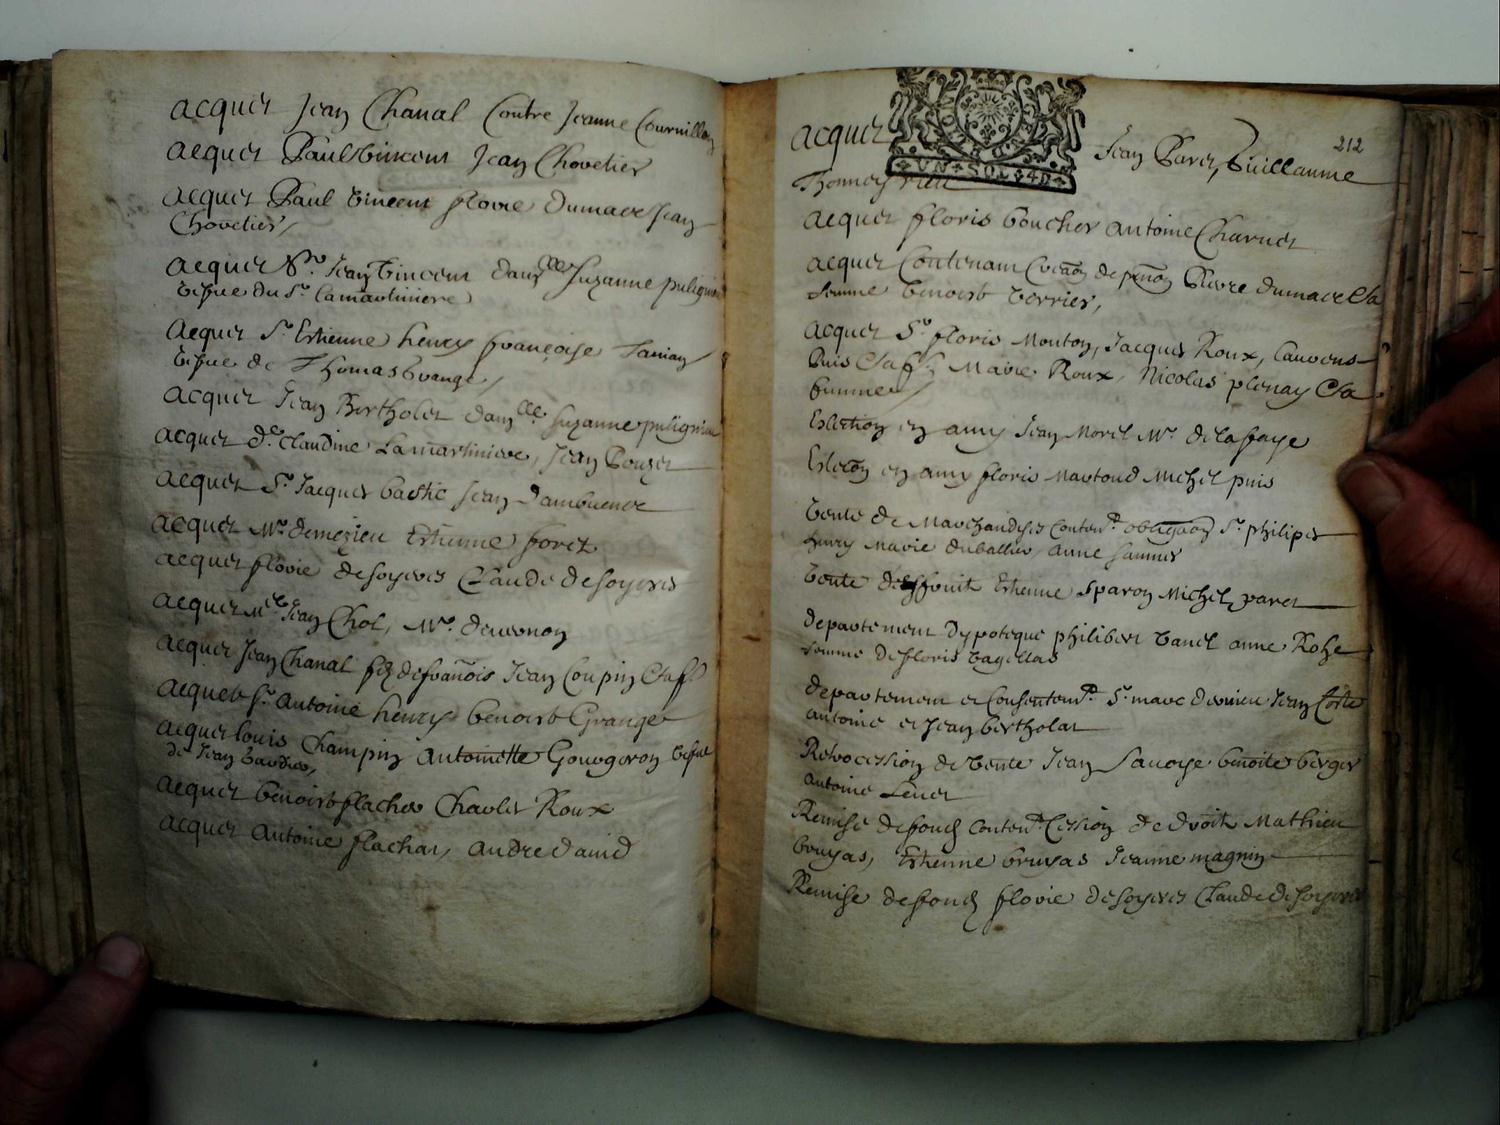 acquet Jean Chanal Contre Jeanne Cournillon
acquet Paul Vincent Jean Chovetier
acquet Paul Vincent florie dumace Jean
Chovetier,
acquet Sr. Jean Vincent damlle Suzanne pulignieu
vefue du Sr. Lamartiniere
acquet Sr. Estienne henry françoise
vefue de Thomas
acquet Jean Bertholet damlle. Suzanne pulignieu
acquet de. Claudine Lamartiniere, Jean Bouzet
acquet Sr. Jacques bastie Jean
acquet Mr. demezieu Estienne foret
acquet florie desoyeres Claude desoyeres
acquet Me Jean Chol, Mr. devernon
acquet Jean Chanal filz defranois Jean Coupin
acquet Sr. Antoine henry benoist Grange
acquet louis Champin Antoinette Gourgeron vefue
de Jean
acquet benoist flacher Charles Roux
acquet Antoine flachat, andre david
212
acquet Jean Paret, Guillaume
Thonnerieu
UN SOL 4D
acquet floris boucher antoine Charvet
acquet Contenant de Pierre dumace Sa
femme benoist verrier,
acquet Sr. floris Mouton, Jacques Roux, Laurens
Puis Marie Roux, Nicolas plenay Sa
femme
Eslection en amy Jean Morel Mr. delafaye
en amy floris Martoud Michel puis
Vente de Marchandises Content. obligaon Sr. philipes
henry Marie duvallier, anne
Vente Estienne Sparon Michel paret
departement dypoteque philibert anne Roze
femme de floris
departement et Consentemt. Sr. marc Jean
antoine et Jean bertholat
Retrocession de Vente Jean Savoye benoite berger
antoine
Remise defond Content. Cession de droit Mathieu
bruyas, Estienne bruyas Jeanne magnin
Remise defond florie desoyeres Claude desoyeres